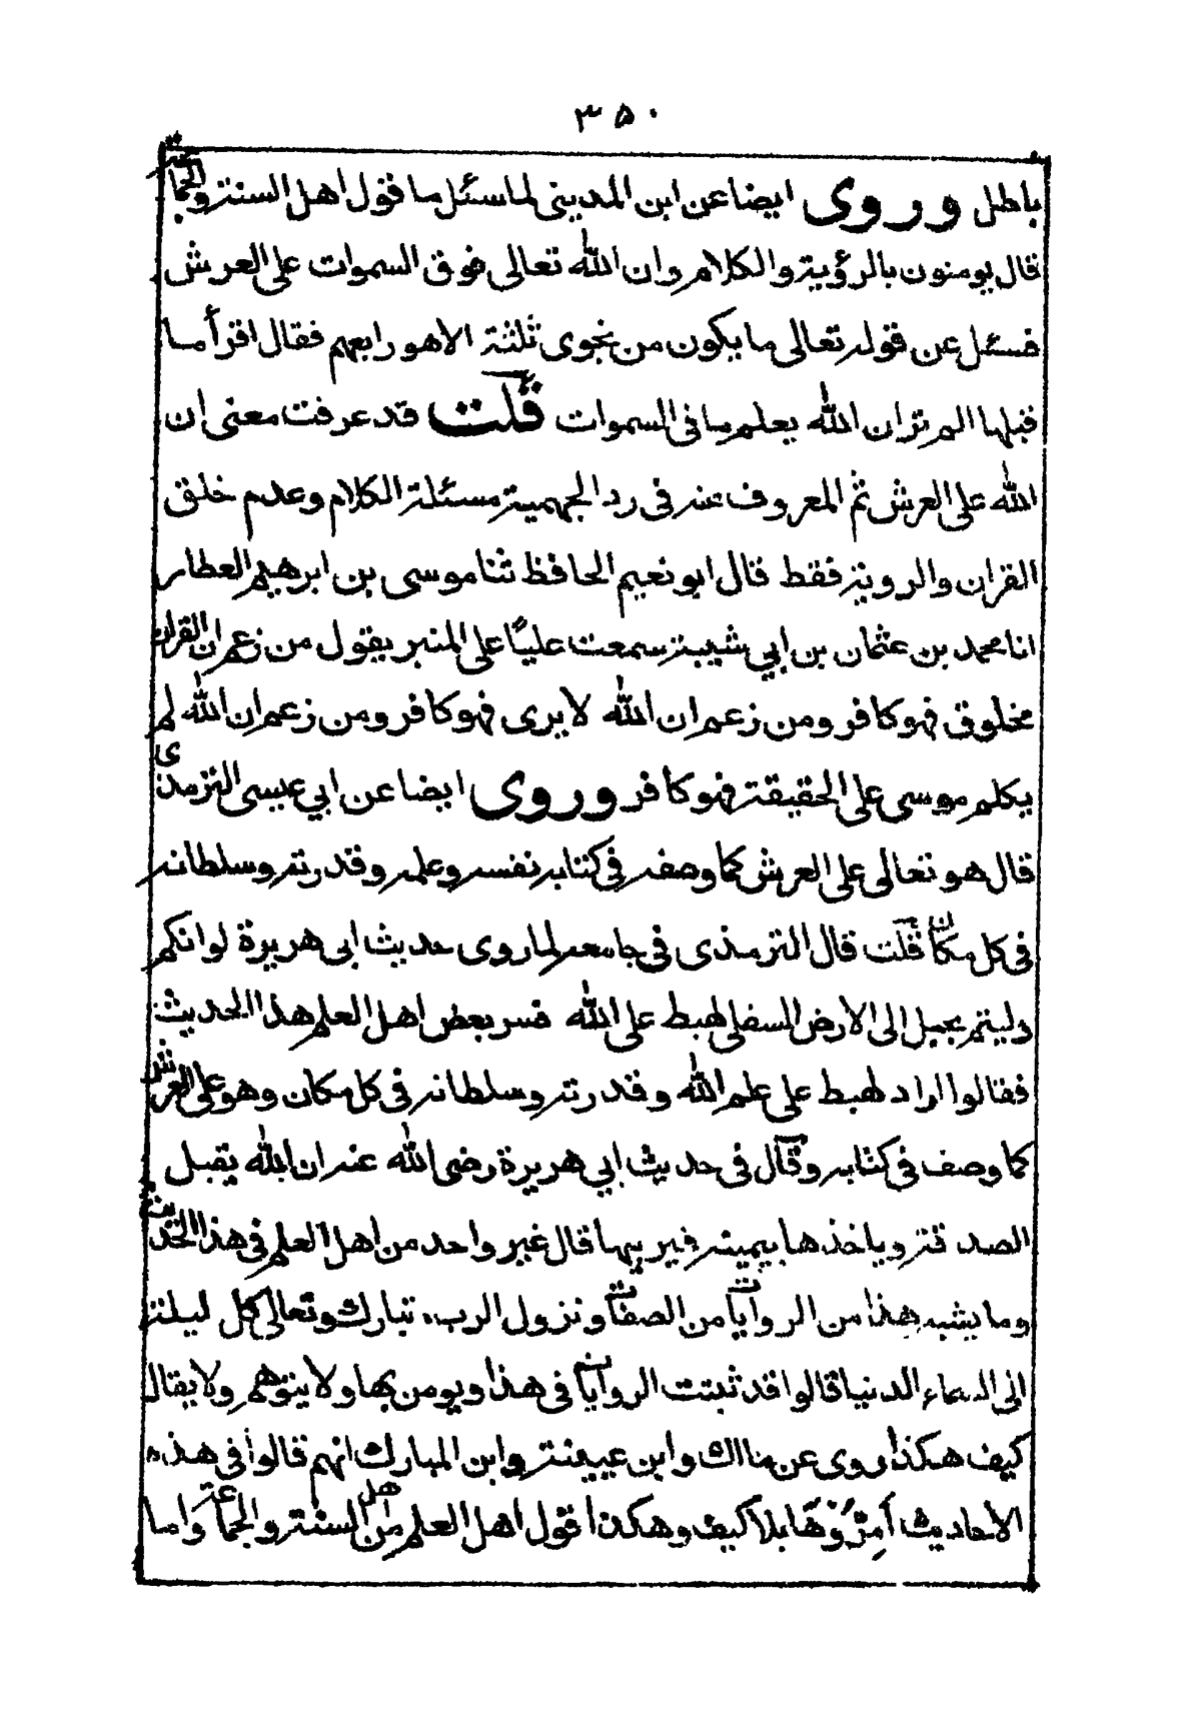 ٣٥٠
باطل وروى ايضا عن ابن المدينى لما سئل ما قول اهل السنة والجماعة
قال يومنون بالرؤية والكلام وان الله تعالى فوق السموات على العرش
فسئل عن قوله تعالى ما يكون من نجوى ثلثة الا هو رابعهم فقال اقرأ ما
قبلها الم تر ان الله يعلم ما فى السموات قلت قد عرفت معنى ان
الله على العرش ثم المعروف عنه فى رد الجهمية مسئلة الكلام وعدم خلق
القران والروية فقط قال ابو نعيم الحافظ ثنا موسى بن ابرهيم العطار
انا محمد بن عثمان بن ابي شيبة سمعت عليًا على المنبر يقول من زعم ان القران
مخلوق فهو كافر ومن زعم ان الله لا يرى فهو كافر ومن زعم ان الله لم
يكلم موسى على الحقيقة فهو كافر وروى ايضا عن ابي عيسى الترمذى
قال هو تعالى على العرش كما وصفه فى كتابه نفسه وعلمه وقدرته وسلطانه
فى كل مكان قلت قال الترمذى فى جامعه لما روى حديث ابى هريرة لو انكم
دليتم بحبل الى الارض السفلى لهبط على الله فسر بعض اهل العلم هذا الحديث
فقالوا اراد لهبط على علم الله وقدرته وسلطانه فى كل مكان وهو على العرش
كما وصف فى كتابه وقال فى حديث ابي هريرة رضى الله عنه ان الله يقبل
الصدقة وياخذها بيمينه فيربيها قال غير واحد من اهل العلم فى هذا الحديث
وما يشبه هذا من الروايات من الصفات ونزول الرب تبارك وتعالى كل ليلة
الى السماء الدنيا قالوا قد ثبتت الروايات فى هذا ويومن بها ولا يتوهم ولا يقال
كيف هكذا روى عن مالك وابن عيينة وابن المبارك انهم قالوا فى هذه
الاحاديث أمِرُّوْهَا بلا كيف وهكذا قول اهل العلم من اهل السنة والجماعة واما